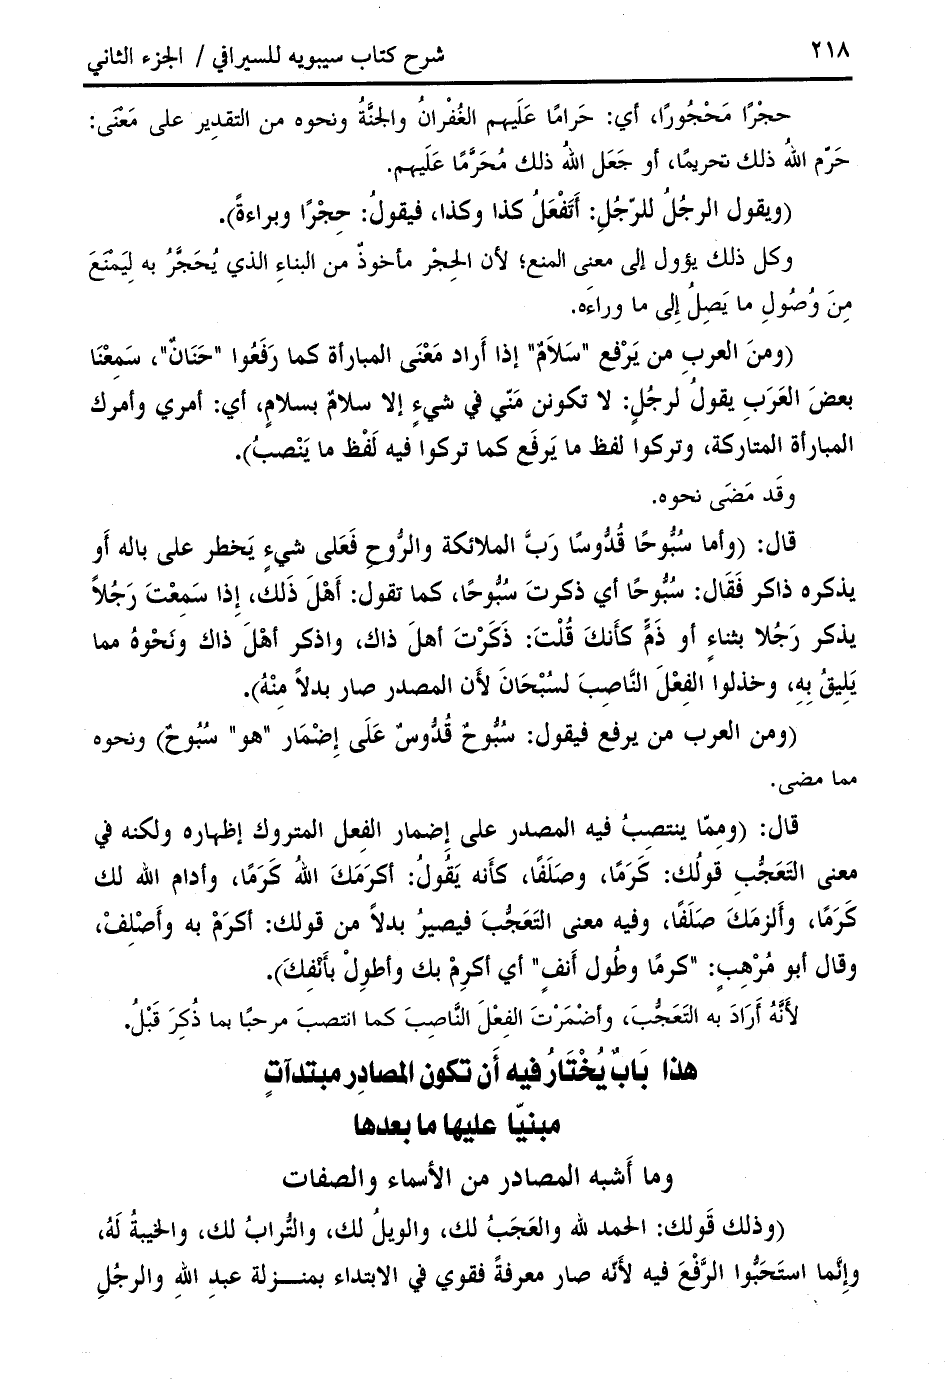 ٢١٨
شرح كتاب سيبويه للسيرافي / الجزء الثاني
حجْرًا مَحْجُورًا، أي: حَرامًا عَلَيهم الغُفْرانُ والجنَّةُ ونحوه من التقدير على مَعْنَى:
حَرّم اللهُ ذلك تحريمًا، أو جَعَل اللهُ ذلك مُحَرَّمًا عَلَيهم.
(ويقول الرجُلُ للرّجُلِ: أَتَفْعَلُ كذا وكذا، فيقولُ: حِجْرًا وبراءةً).
وكل ذلك يؤول إلى معنى المنع؛ لأن الحِجْر مأخوذٌ من البناءِ الذي يُحَجَّرُ به لِيَمْنَعَ
مِنَ وُصُولِ ما يَصِلُ إلى ما وراءَه.
(ومنَ العربِ من يَرْفع "سَلاَمٌ" إذا أَراد مَعْنَى المبارأة كما رَفَعُوا "حَنَانٌ"، سَمِعْنا
بعضَ العَرَبِ يقولُ لرجُلٍ: لا تكونن منّي في شيءٍ إلا سلامٌ بسلامٍ، أي: أمري وأمرك
المبارأة المتاركة، وتركوا لفظ ما يَرفَع كما تركوا فيه لَفْظ ما يَنْصبُ).
وقَد مَضَى نحوه.
قال: (وأما سُبُّوحًا قُدُّوسًا رَبَّ الملائكة والرُّوحِ فَعَلى شيءٍ يَخطر على باله أو
يذكره ذاكر فَقَال: سُبُّوحًا أي ذكرتَ سُبُّوحًا، كما تقول: أَهْلَ ذَلك، إذا سَمِعْتَ رَجُلاً
يذكر رَجُلا بثناءٍ أو ذَمٍّ كأنكَ قُلْتَ: ذَكَرْتَ أهلَ ذاك، واذكر أهْلَ ذاك ونَحْوهُ مما
يَلِيقُ بِهِ، وخذلوا الفِعْلَ النَّاصِبَ لسُبْحَانَ لأَن المصدر صار بدلاً مِنْهُ).
(ومن العرب من يرفع فيقول: سُبُّوحٌ قُدُّوسٌ عَلَى إِضْمَار "هو" سُبُوحٌ) ونحوه
مما مضى.
قال: (وممّا ينتصبُ فيه المصدر على إضمار الفعل المتروك إظهاره ولكنه في
معنى التَعَجُّب قولُك: كَرَمًا، وصَلَفًا، كأنه يَقُولُ: أكرَمَكَ اللهُ كَرَمًا، وأدام الله لك
كَرَمًا، وأَلزمَكَ صَلَفًا، وفيه معنى التَعَجُّبَ فيصيرُ بدلاً من قولك: أكرَمْ به وأَصْلفْ،
وقال أبو مُرْهِبٍ: "كرمًا وطُول أنف" أي أكرِمْ بك وأطولْ بأَنْفِكَ).
لأَنَّهُ أَرَادَ به التَعَجُّبَ، وأَضْمَرْتَ الفِعْلَ النَّاصِبَ كما انتصبَ مرحبًا بما ذُكِرَ قَبْلُ.
هذا بَابٌ يُخْتَارُ فيه أَن تكون المصادِر مبتدآتٍ
مبنيّا عليها ما بعدها
وما أَشبه المصادر من الأسماء والصفات
(وذلك قَولك: الحمد لله والعَجَبُ لك، والويلُ لك، والتُّرابُ لك، والخيبةُ لَهُ،
وإِنَّما استَحَبُّوا الرَّفْعَ فيه لأَنّه صار معرفةً فقوي في الابتداء بمنزلة عبدِ اللهِ والرجُلِ